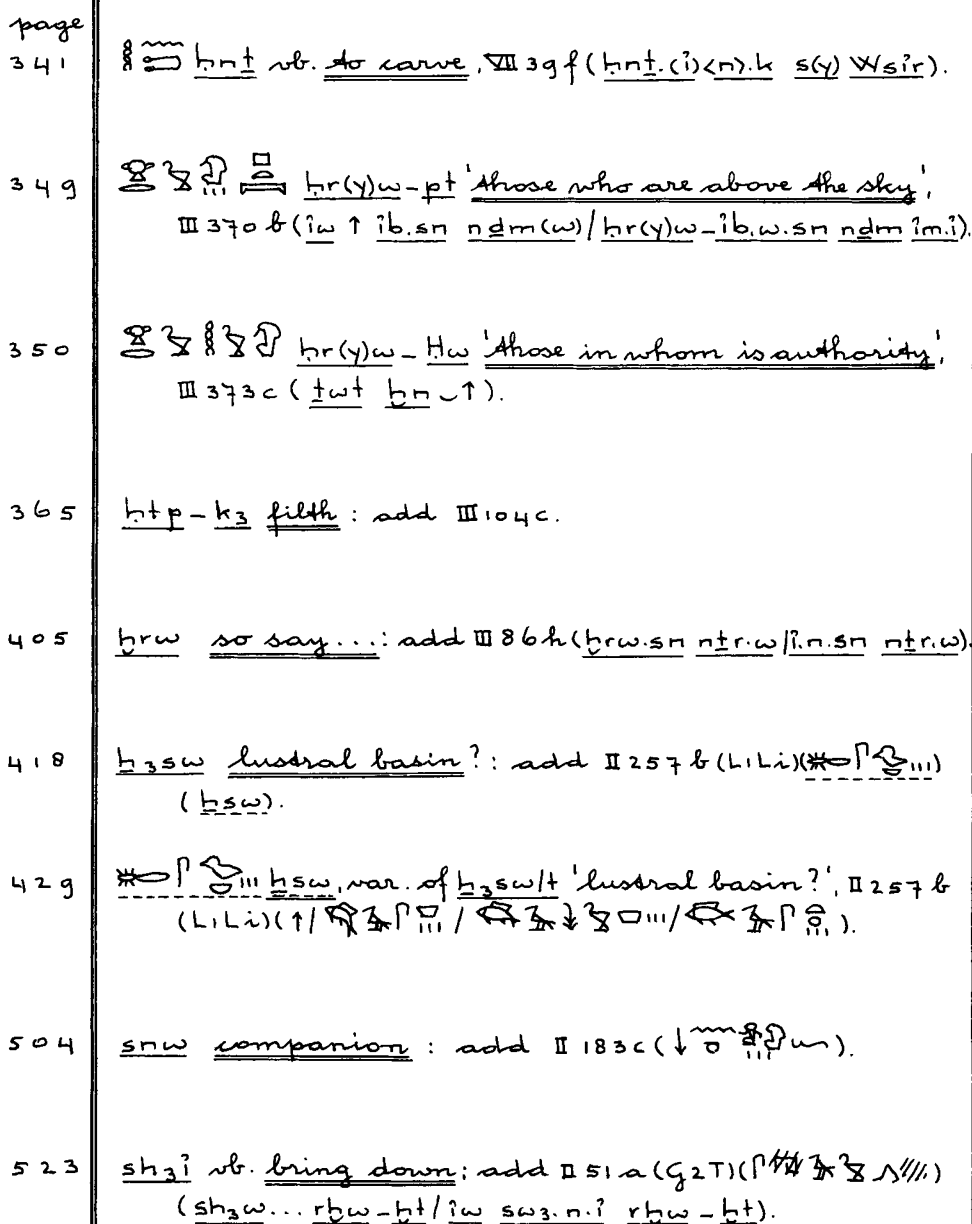 page
341 ḥnṯ vb. to carve, VII 39f (ḥnṯ.(i)<n>.k s(y) Wsỉr).
349 ḥr(y)w-pt 'those who are above the sky',
III 370b (ỉw ↑ ỉb.sn nḏm(w)/ḥr(y)w-ỉb.w.sn nḏm ỉm.ỉ).
350 ḥr(y)w-Ḥw 'those in whom is authority',
III 373c (twt ḫn ↑).
365 ḥtp-kꜣ filth: add III 104c.
405 ḫrw so say...: add III 86h (ḫrw.sn nṯr.w/ỉ.n.sn nṯr.w).
418 ẖꜣsw lustral basin?: add II 257b (L1Li)( )
(ẖsw).
429 ẖsw, var. of ẖꜣsw/t 'lustral basin?', II 257b
(L1Li)(↑/ / / ).
504 snw companion: add II 183c ( ).
523 shꜣỉ vb. bring down: add II 51a (G2T)( )
(shꜣw... rḫw-ḫt/ỉw swꜣ.n.ỉ rḫw-ḫt).